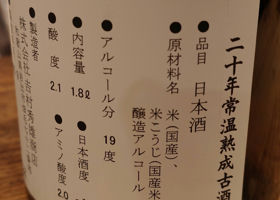 二十年常温熟成古酒
●品目 日本酒
●原材料名 米(国産)、
米こうじ(国産米
醸造アルコール
●アルコール分 19度
●内容量 1.8ℓ ●日本酒度
●酸度 2.1 ●アミノ酸度 2.0
●製造者
株式会社吉村秀雄商店